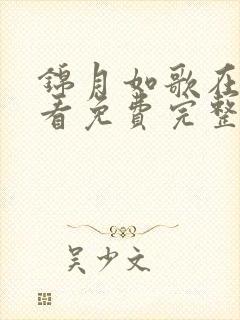 锦月如歌在
看免费完整
吴少文